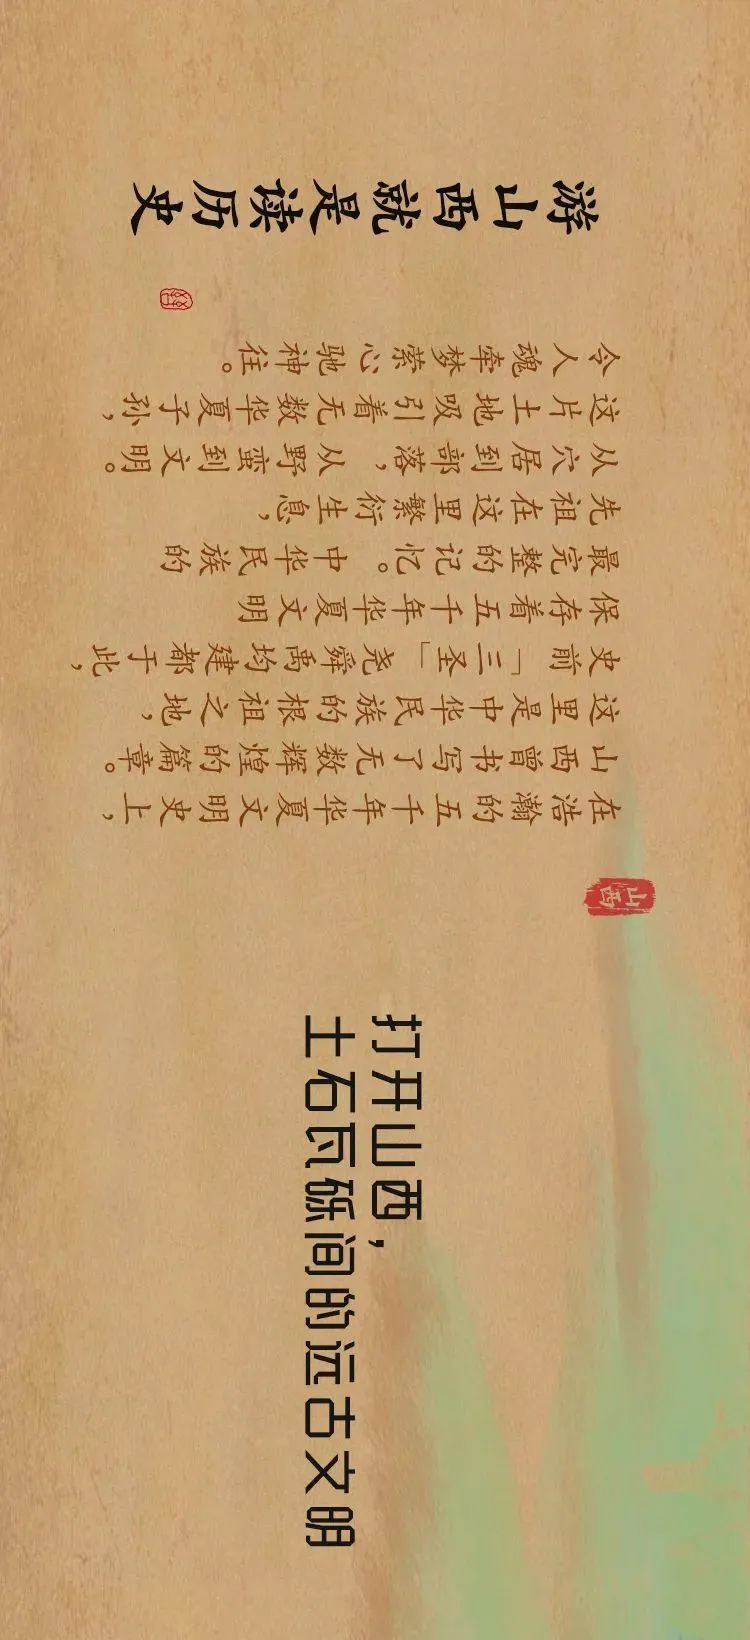 打开山西，
土石瓦砾间的远古文明
山西
在浩瀚的五千年华夏文明史上，
山西曾书写了无数辉煌的篇章。
这里是中华民族的根祖之地，
史前「三圣」尧舜禹均建都于此，
保存着五千年华夏文明
最完整的记忆。中华民族的
先祖在这里繁衍生息，
从穴居到部落，从野蛮到文明。
这片土地吸引着无数华夏子孙，
令人魂牵梦萦心驰神往。
游山西就是读历史